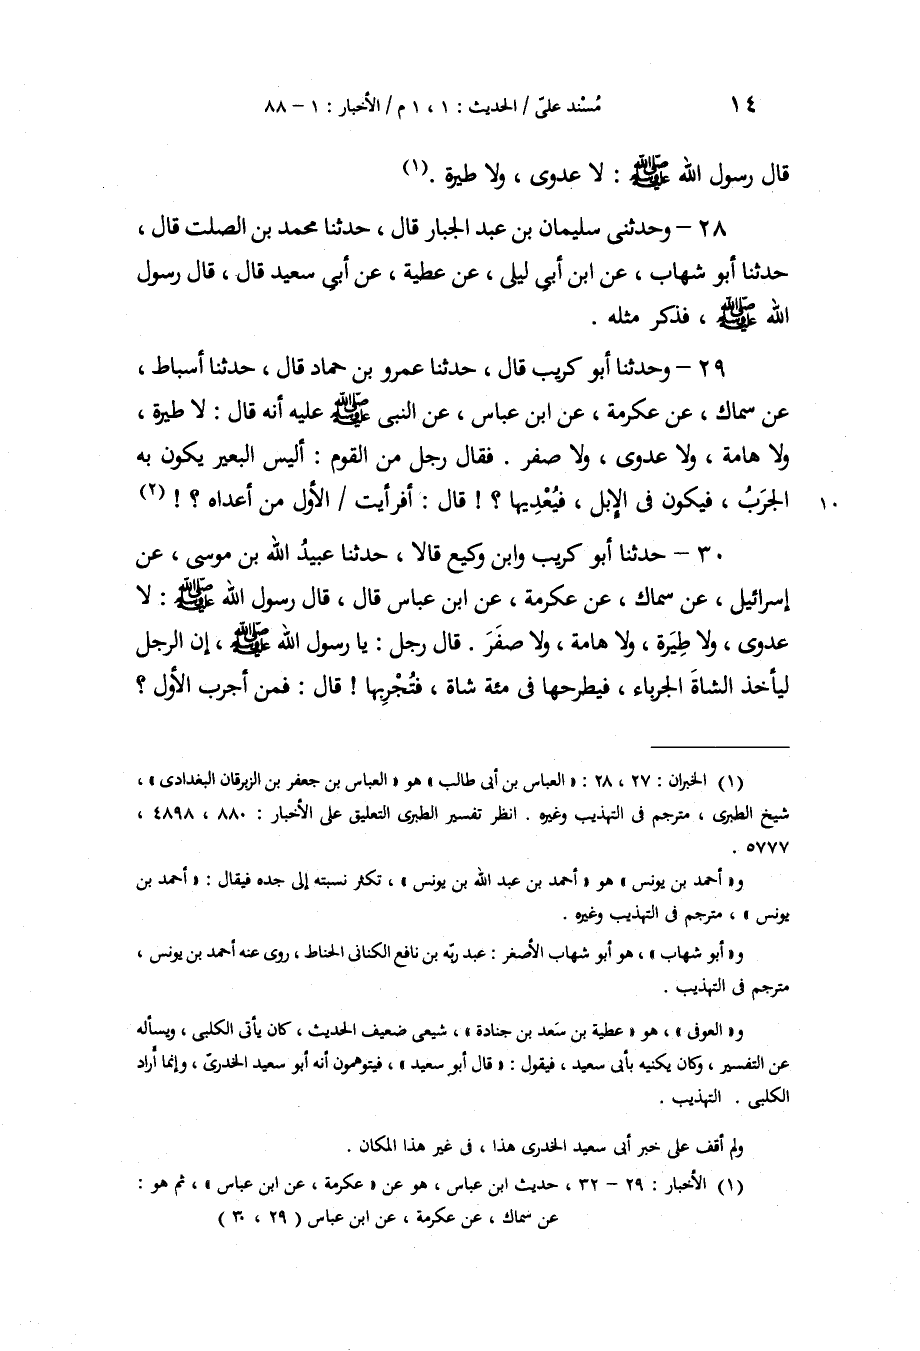 ١٤ مُسْند علىّ / الحديث : ١ ، ١ م / الأخبار : ١ – ٨٨
قال رسول الله ﷺ : لا عدوى ، ولا طيرة .(١)
٢٨ – وحدثنى سليمان بن عبد الجبار قال ، حدثنا محمد بن الصلت قال ،
حدثنا أبو شهاب ، عن ابن أبي ليلى ، عن عطية ، عن أبي سعيد قال ، قال رسول
الله ﷺ ، فذكر مثله .
٢٩ – وحدثنا أبو كريب قال ، حدثنا عمرو بن حماد قال ، حدثنا أسباط ،
عن سماك ، عن عكرمة ، عن ابن عباس ، عن النبى ﷺ عليه أنه قال : لا طيرة ،
ولا هامة ، ولا عدوى ، ولا صفر . فقال رجل من القوم : أليس البعير يكون به
الجَرَبُ ، فيكون فى الإبل ، فيُعْدِيها ؟ ! قال : أفرأيت / الأول من أعداه ؟ ! (٢) ١٠
٣٠ – حدثنا أبو كريب وابن وكيع قالا ، حدثنا عبيدُ الله بن موسى ، عن
إسرائيل ، عن سماك ، عن عكرمة ، عن ابن عباس قال ، قال رسول الله ﷺ : لا
عدوى ، ولا طِيَرة ، ولا هامة ، ولا صفَرَ . قال رجل : يا رسول الله ﷺ ، إن الرجل
ليأخذ الشاةَ الجرباء ، فيطرحها فى مئة شاة ، فتُجْرِبها ! قال : فمن أجرب الأول ؟
(١) الخبران : ٢٧ ، ٢٨ : « العباس بن أبى طالب » هو « العباس بن جعفر بن الزبرقان البغدادى » ،
شيخ الطبرى ، مترجم فى التهذيب وغيره . انظر تفسير الطبرى التعليق على الأخبار : ٨٨٠ ، ٤٨٩٨ ،
٥٧٧٧ .
و« أحمد بن يونس » هو « أحمد بن عبد الله بن يونس » ، تكثر نسبته إلى جده فيقال : « أحمد بن
يونس » ، مترجم فى التهذيب وغيره .
و« أبو شهاب » ، هو أبو شهاب الأصغر : عبد ربّه بن نافع الكنانى الحناط ، روى عنه أحمد بن يونس ،
مترجم فى التهذيب .
و« العوفى » ، هو « عطية بن سَعد بن جنادة » ، شيعى ضعيف الحديث ، كان يأتى الكلبى ، ويسأله
عن التفسير ، وكان يكنيه بأبى سعيد ، فيقول : « قال أبو سعيد » ، فيتوهمون أنه أبو سعيد الخدرىّ ، وإنما أراد
الكلبى . التهذيب .
ولم أقف على خبر أبى سعيد الخدرى هذا ، فى غير هذا المكان .
(١) الأخبار : ٢٩ – ٣٢ ، حديث ابن عباس ، هو عن « عكرمة ، عن ابن عباس » ، ثم هو :
عن سماك ، عن عكرمة ، عن ابن عباس ( ٢٩ ، ٣٠ )